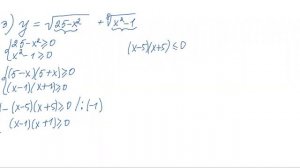 3) y = √(25-x²) + √(x²-1)
{25-x² ≥ 0
x²-1 ≥ 0
(x-5)(x+5) ≤ 0
{(5-x)(5+x) ≥ 0
(x-1)(x+1) ≥ 0
-(x-5)(x+5) ≥ 0 /:(-1)
(x-1)(x+1) ≥ 0